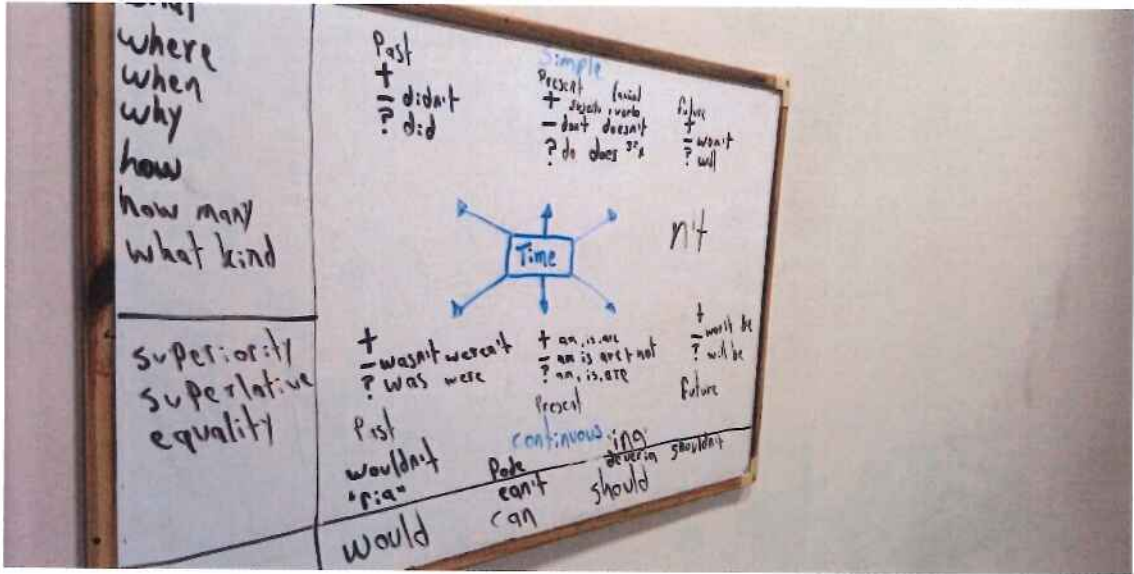 what
where
when
why
how
how many
what kind
superiority
superlative
equality
Past
+
- didn't
? did
Simple
Present
+ verb
- don't doesn't
? do does
future
+
- won't
? will
Time
n't
+
- wasn't weren't
? was were
Past
+ am, is, are
- am is are + not
? am, is, are
Present
+
- won't be
? will be
future
continuous "ing"
wouldn't
"ria"
would
Pode
can't
can
deveria shouldn't
should